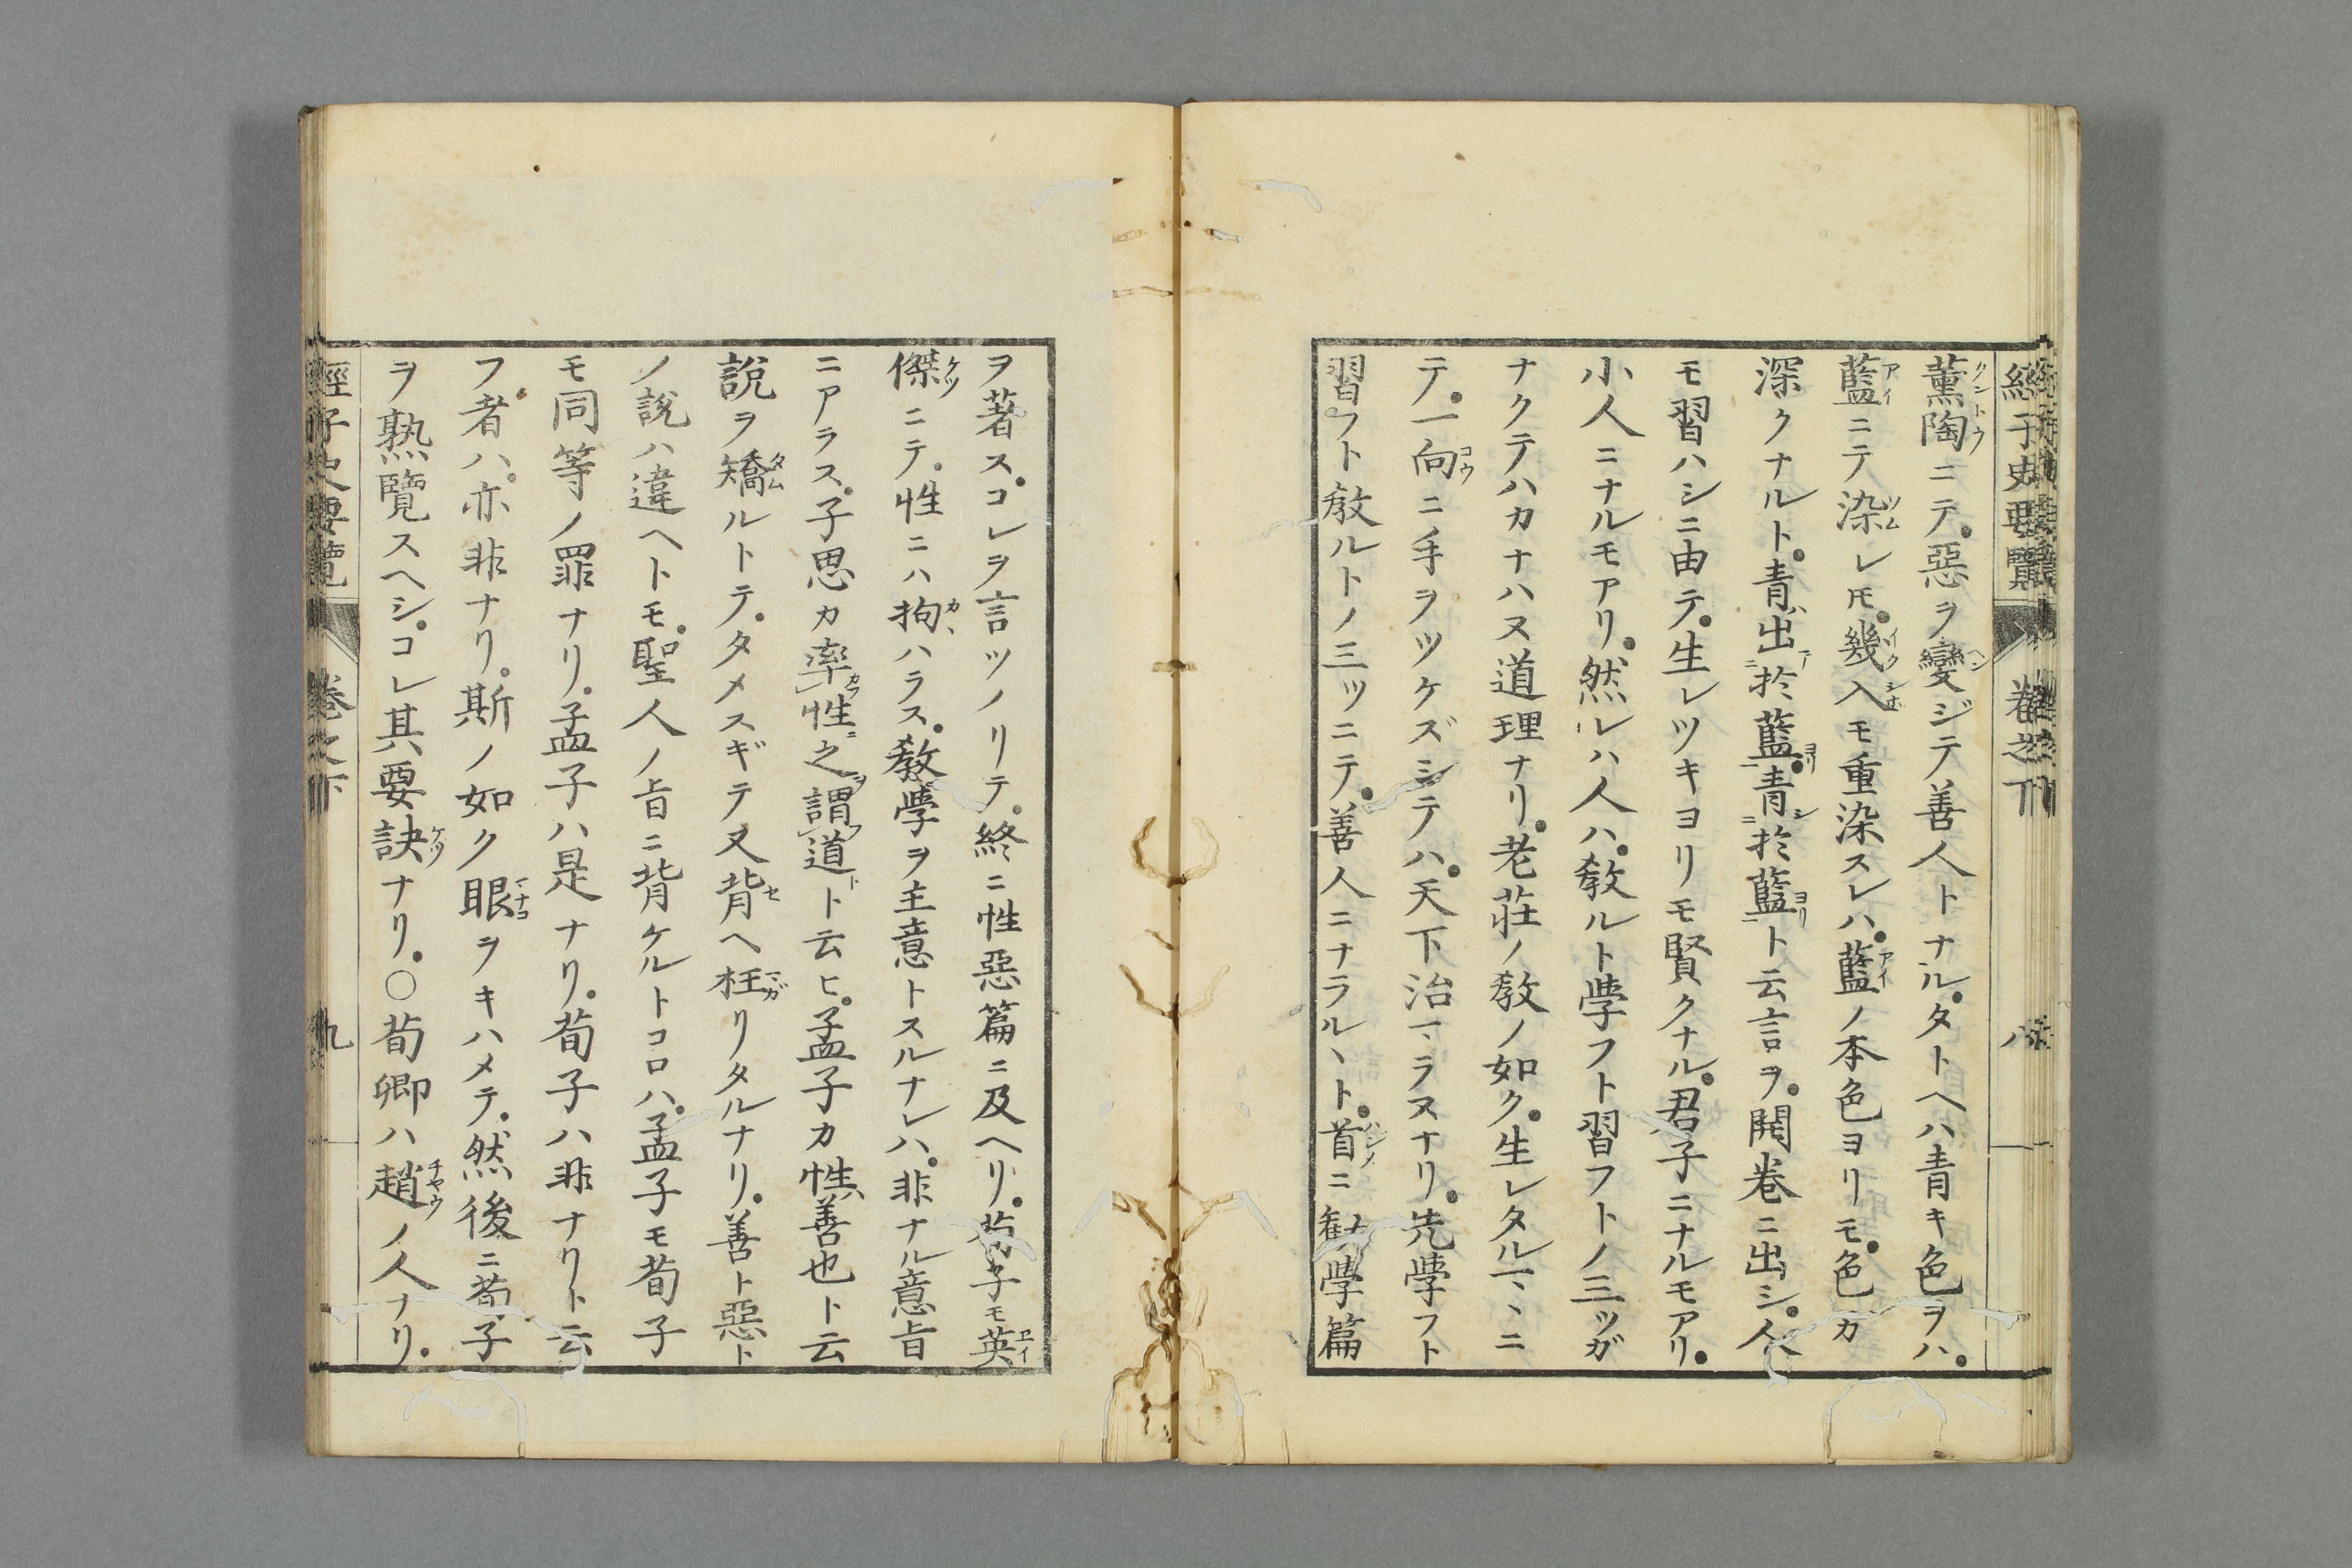 經子史要覽 卷之下 八
薰陶ニテ。惡ヲ變ジテ善人トナル。タトヘハ青キ色ヲハ。
藍ニテ染レモ。幾入モ重染スレハ。藍ノ本色ヨリモ。色カ
深クナルト。青出於藍。青於藍ト云言ヲ。開卷ニ出シ。人
モ習ハシニ由テ。生レツキヨリモ賢クナル。君子ニナルモアリ。
小人ニナルモアリ。然レハ人ハ。教ルト學フト習フトノ三ツガ
ナクテハカナハヌ道理ナリ。老莊ノ教ノ如ク。生レタルマヽニ
テ。一向ニ手ヲツケズシテハ。天下治マラヌナリ。先學フト
習フト教ルトノ三ツニテ。善人ニナラルヽト。首ニ勸學篇
ヲ著ス。コレヲ言ツノリテ。終ニ性惡篇ニ及ヘリ。荀子モ英
傑ニテ。性ニハ拘ハラス。教學ヲ主意トスルナレハ。非ナル意旨
ニアラス。子思カ率性之謂道ト云ヒ。孟子カ性善也ト云
說ヲ矯ルトテ。タメスギテ又背ヘ枉リタルナリ。善ト惡ト
ノ說ハ違ヘトモ。聖人ノ旨ニ背ケルトコロハ。孟子モ荀子
モ同等ノ罪ナリ。孟子ハ是ナリ。荀子ハ非ナリト云
フ者ハ。亦非ナリ。斯ノ如ク眼ヲキハメテ。然後ニ荀子
ヲ熟覽スヘシ。コレ其要訣ナリ。○荀卿ハ趙ノ人ナリ。
經子史要覽 卷之下 九